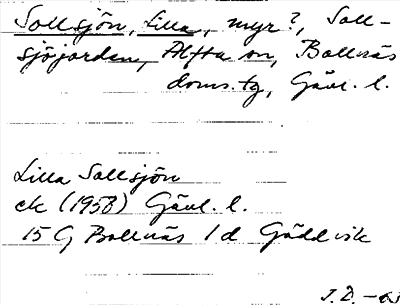 Sollsjön, Lilla, myr?, Soll-
sjöjorden, Alfta sn, Bollnäs
doms. tg, Gävl. l.
Lilla Sollsjön
ek (1958) Gävl. l.
15 G Bollnäs 1 d Gäddvik
J. D. -63